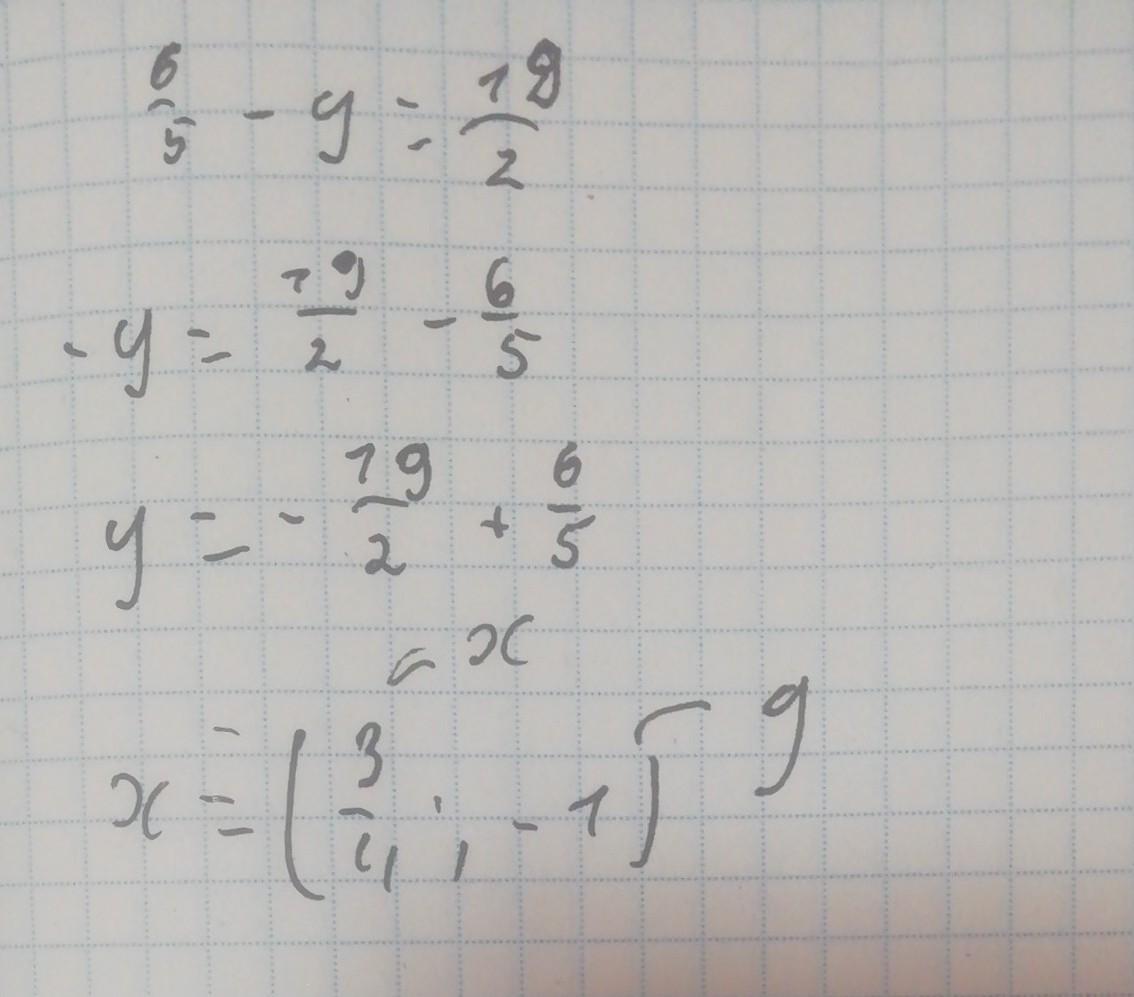 6/5 - y = 19/2
-y = 19/2 - 6/5
y = - 19/2 + 6/5
x
x = (3/4 ; -1) y